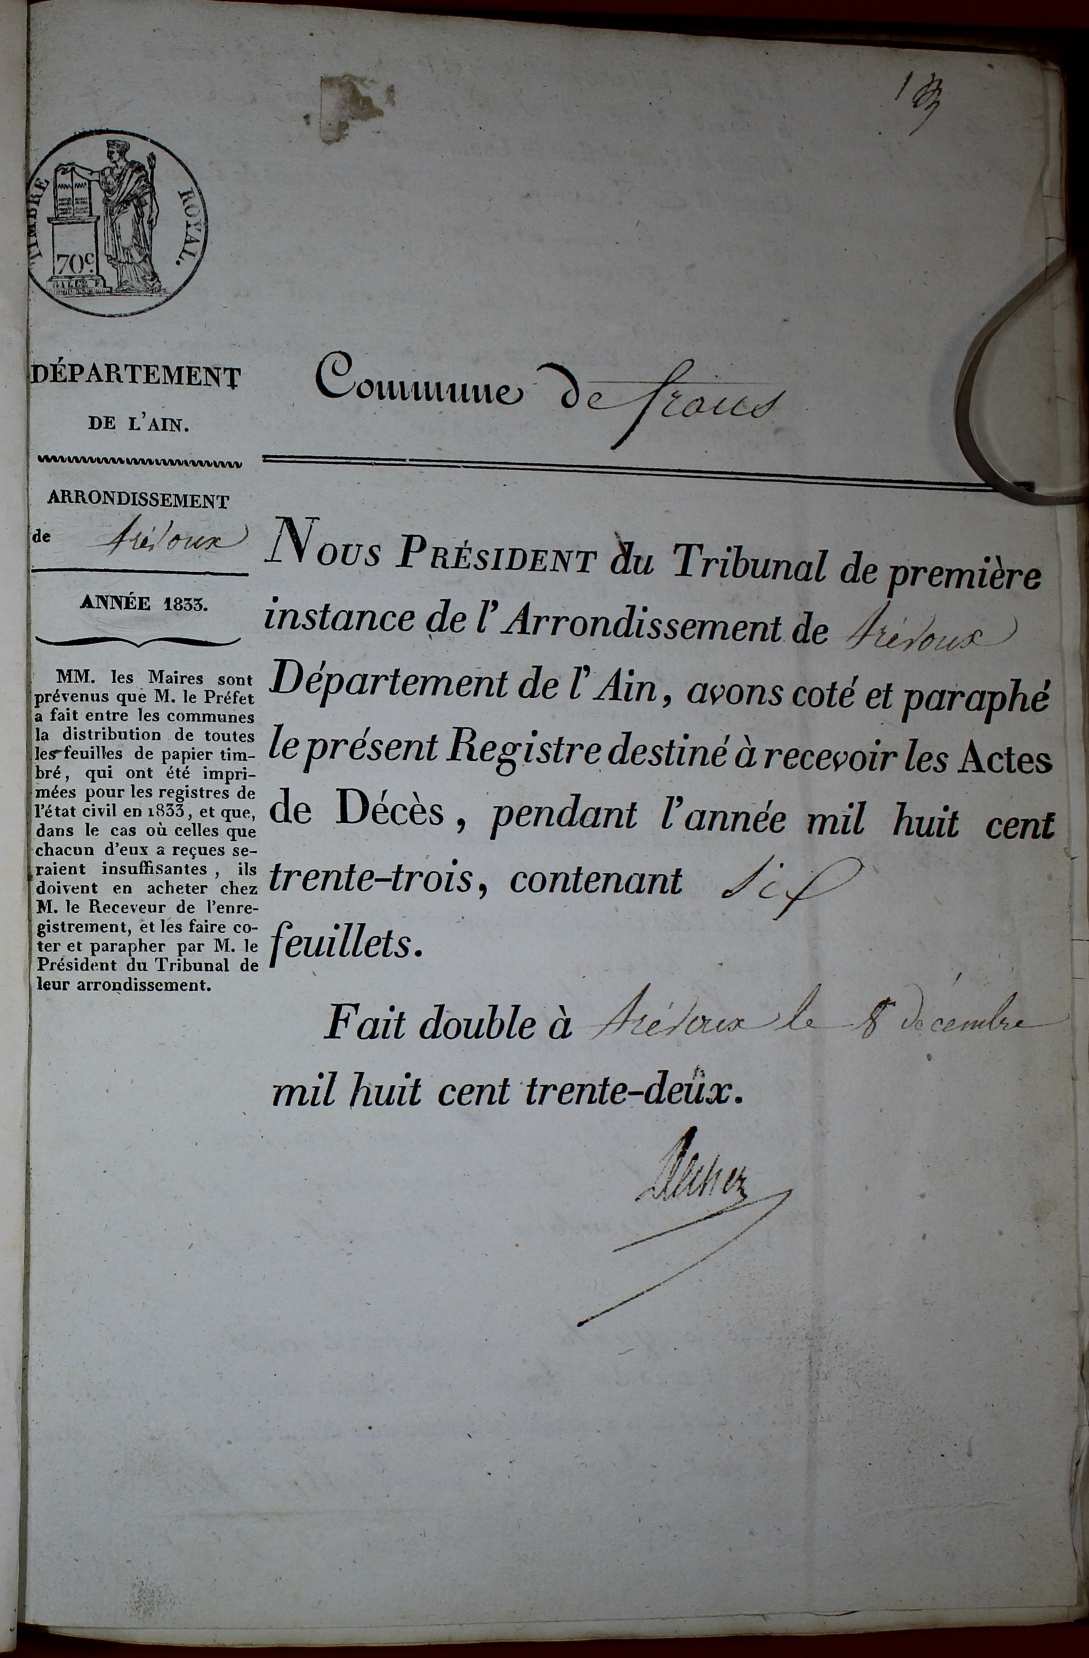 1
TIMBRE ROYAL.
70c
DÉPARTEMENT
DE L'AIN.
ARRONDISSEMENT
de trévoux
ANNÉE 1833.
MM. les Maires sont
prévenus que M. le Préfet
a fait entre les communes
la distribution de toutes
les feuilles de papier tim-
bré, qui ont été impri-
mées pour les registres de
l'état civil en 1833, et que,
dans le cas où celles que
chacun d'eux a reçues se-
raient insuffisantes, ils
doivent en acheter chez
M. le Receveur de l'enre-
gistrement, et les faire co-
ter et parapher par M. le
Président du Tribunal de
leur arrondissement.
Commune de frans
NOUS PRÉSIDENT du Tribunal de première
instance de l'Arrondissement de trévoux
Département de l'Ain, avons coté et paraphé
le présent Registre destiné à recevoir les Actes
de Décès, pendant l'année mil huit cent
trente-trois, contenant six
feuillets.
Fait double à trévoux le 8 décembre
mil huit cent trente-deux.